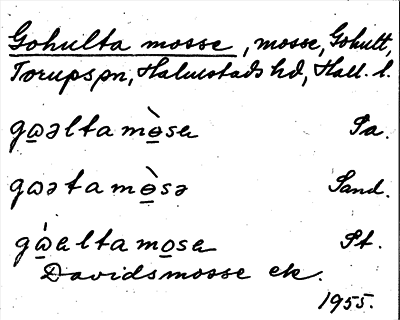 Gohulta mosse, mosse, Gohult,
Torups sn, Halmstads hd, Hall. l.
gω̲əltamò̲sa Pa.
gωətamò̲sə Sand.
gώ̲əltamo̲sa St.
Davidsmosse ek.
1955.